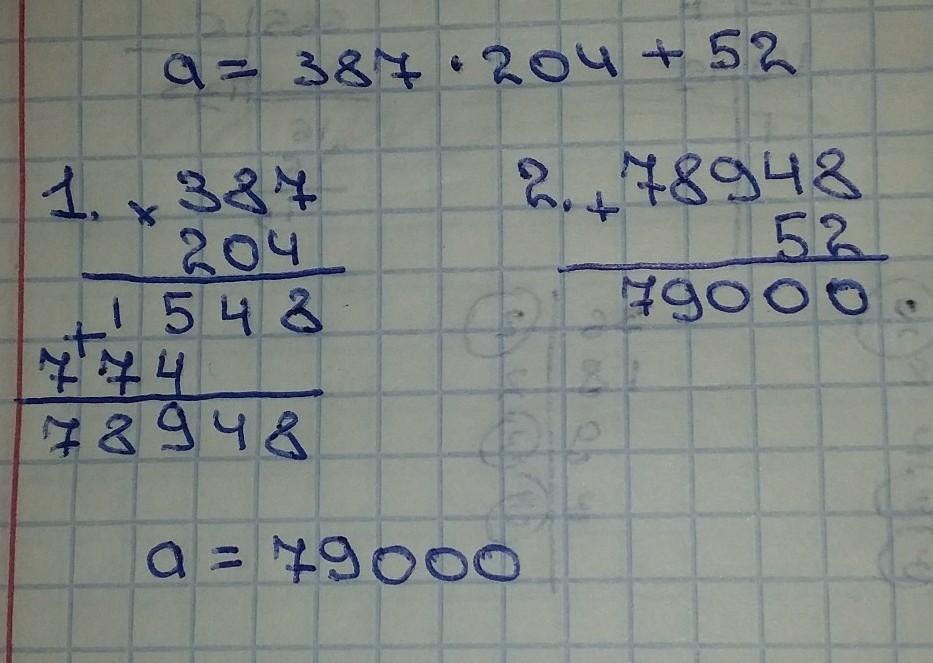 a = 387 · 204 + 52
1. × 387
204
+ 1548
774
78948
2. + 78948
52
79000.
a = 79000